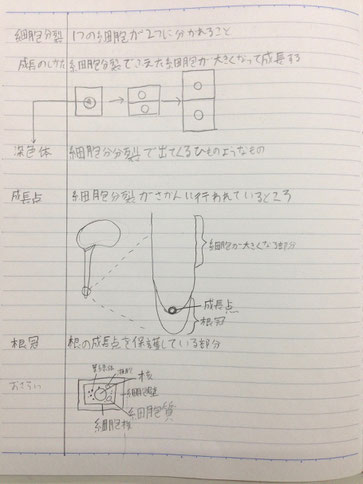 細胞分裂 1つの細胞が2つに分かれること
成長のしかた 細胞分裂でふえた細胞が大きくなって成長する
染色体 細胞分分裂で出てくるひものようなもの
成長点 細胞分裂がさかんに行われているところ
細胞が大きくなる部分
成長点
根冠
根冠 根の成長点を保護している部分
おさらい
核
細胞質